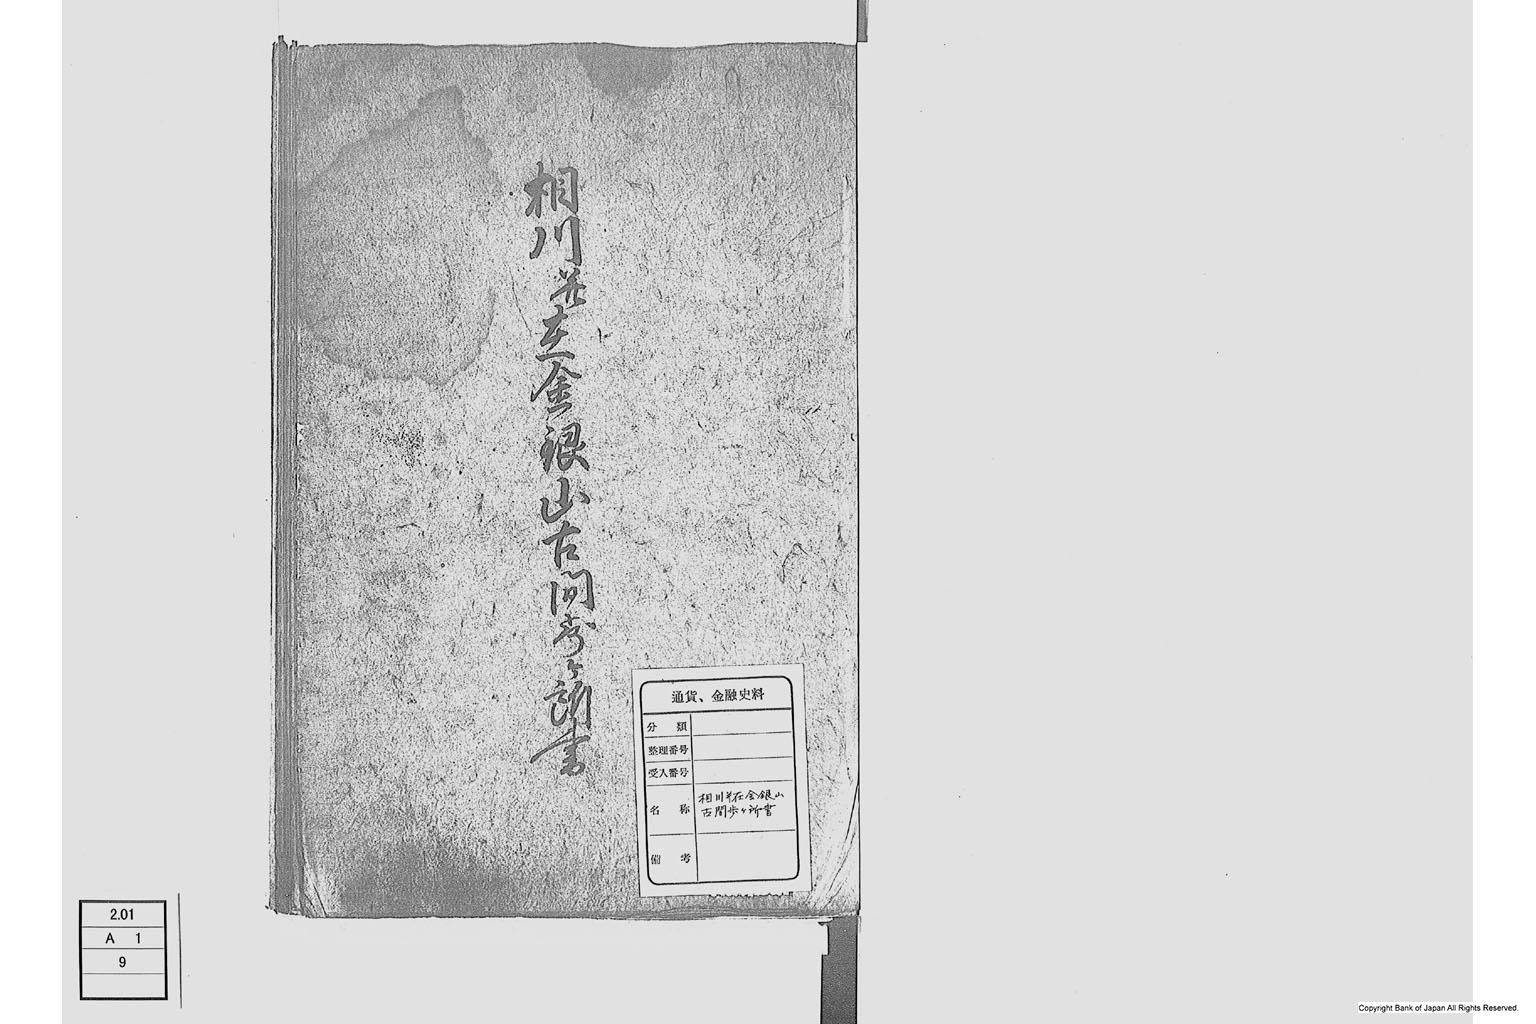 相川并在金銀山古間歩ヶ所書
通貨、金融史料
分類
整理番号
受入番号
名称
相川并在金銀山
古間歩ヶ所書
備考
2.01
A 1
9
Copyright Bank of Japan All Rights Reserved.